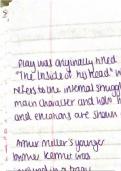 Play was originally titled
"The Inside of his Head" w
refers to the internal struggl
main character and how h
and emotions are shown
Arthur Miller's younger
brother Kermit was
involved in a tragic